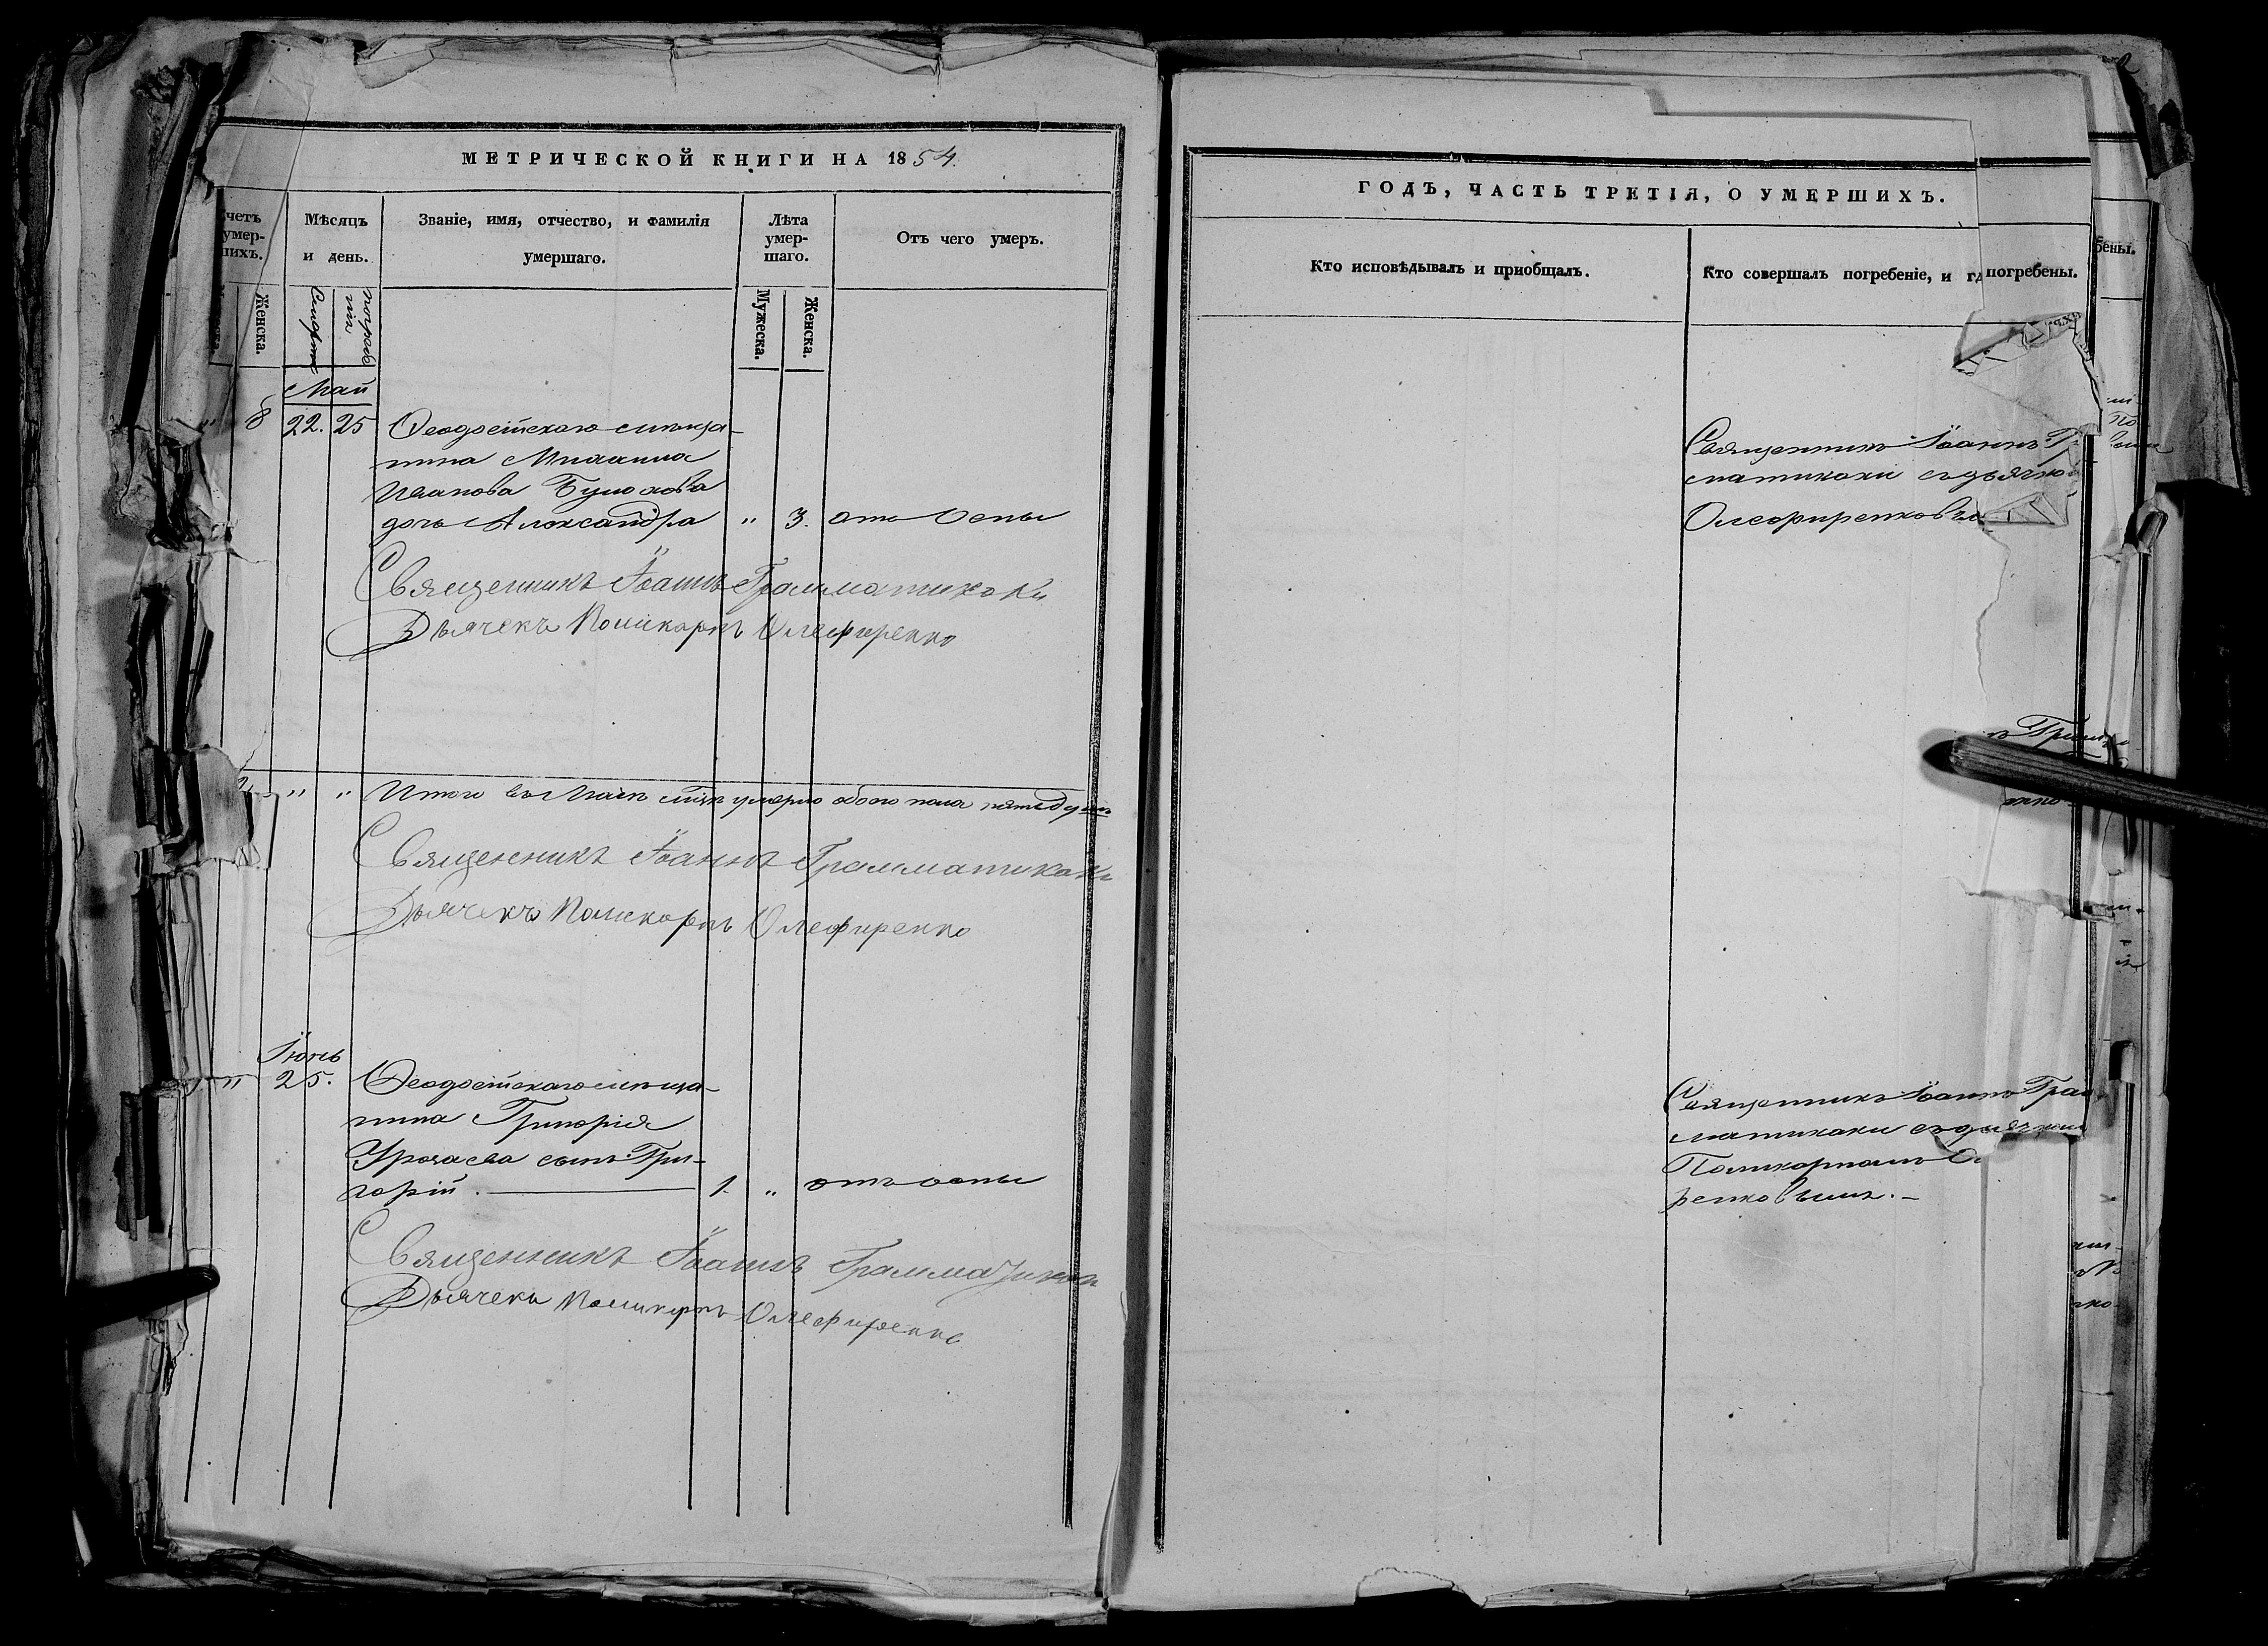 МЕТРИЧЕСКОЙ КНИГИ НА 1854.
четъ умер- шихъ.
Мѣсяцъ и день.
Званіе, имя, отчество, и фамилія умершаго.
Лѣта умер- шаго.
Отъ чего умеръ.
Женска.
Смерти
погребе
нія
Мужеска.
Женска.
Май
8 22. 25 Ѳеодосійскаго мѣща-
нина Михаила
Иванова
дочь Александра " 3. отъ оспы
Священникъ Іоаннъ Грамматикаки
Дьячекъ Поликарпъ Олефиренко
" " Итого въ Маѣ мцѣ умерло обоего пола пять душъ
Священникъ Іоаннъ Грамматикаки
Дьячекъ Поликарпъ Олефиренко
Іюнь
" 25. Ѳеодосійскаго мѣща-
нина Григорія
сынъ Гри-
горій. 1. " отъ оспы
Священникъ Іоаннъ Грамматикаки
Дьячекъ Поликарпъ Олефиренко
ГОДЪ, ЧАСТЬ ТРЕТІЯ, О УМЕРШИХЪ.
Кто исповѣдывалъ и пріобщалъ.
Кто совершалъ погребеніе, и гд погребены.
бены.
Священникъ Іоаннъ Г
матикаки съ дьячко
Олефиренковы
Священникъ Іоаннъ Грам
матикаки съ дьячкомъ
Поликарпомъ О
ренковымъ.